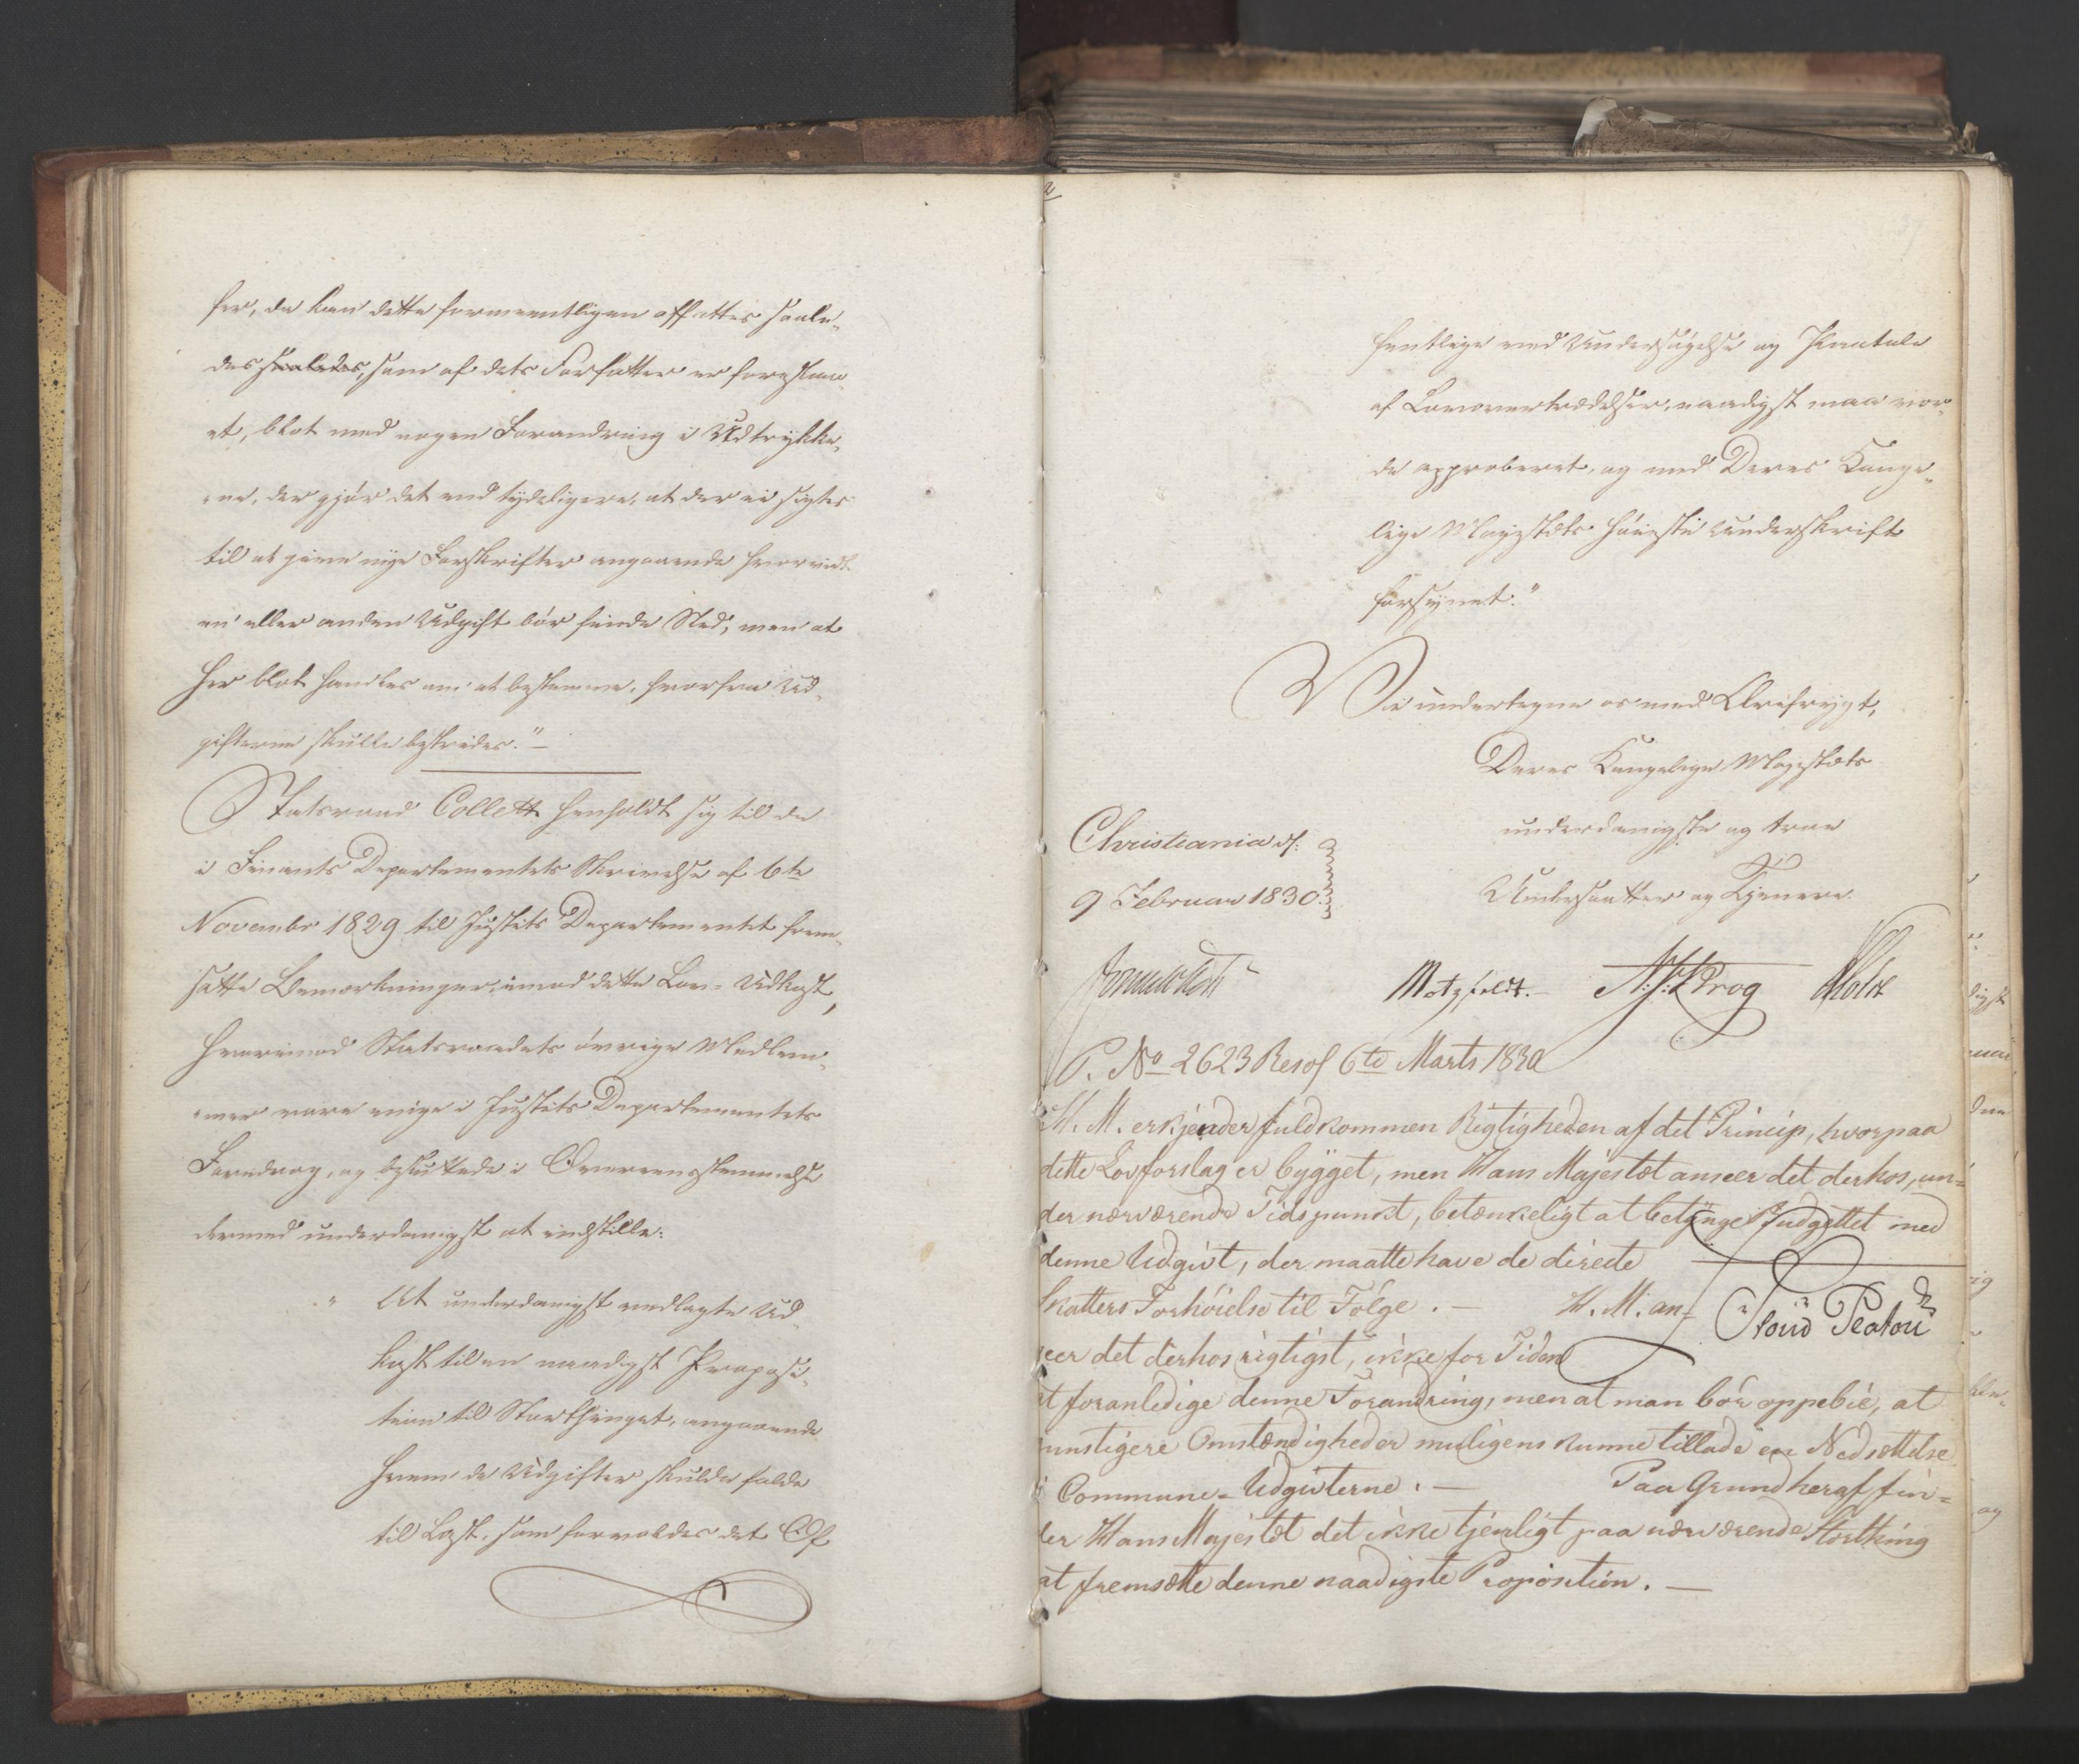 fer, da kan dette formeentligen affattes saale-
des saaledes, som af dets Forfatter er foreslaa-
et, blot med nogen Forandring i Udtrykke-
ne, der gjør det end tydeligere, at der ei sigtes
til at give nye Forskrifter angaaende hvorvidt
en eller anden Udgift bør finde Sted, men at
her blot handles om at bestemme, hvorfra Ud-
gifterne skulle bestrides." —
Statsraad Collett henholdt sig til de
i Finants Departementets Skrivelse af 6te
Novembr 1829 til Justits Departementet frem-
satte Bemærkninger imod dette Lov-Udkast,
hvorimod Statsraadets øvrige Medlem-
mer vare enige i Justits Departementets
Foredrag, og besluttede i Overeensstemmelse
dermed underdanigst at indstille:
" At underdanigst vedlagte Ud-
kast til en naadigst Proposi-
tion til Storthinget, angaaende
hvem de Udgifter skulde falde
til Last, som forvoldes det Of
fentlige ved Undersøgelse og Paatale
af Lovovertrædelser, naadigst maa vor-
de approberet, og med Deres Konge-
lige Majestæts høieste Underskrift
forsynet."
Vi undertegne os med Ærefrygt,
Deres Kongelige Majestæts
underdanigste og troe
Undersaatter og Tjenere.
Christiania d.
9 Februar 1830.
Motzfeldt. N: J: Krog Holst
P. No 2623 Resol 6te Marts 1830
H. M. erkjender fuldkommen Rigtigheden af det Princip, hvorpaa
dette Lovforslag er bygget, men Hans Majestæt anseer det derhos, un-
der nærværende Tidspunkt, betænkeligt at betynge Budgettet med
denne Udgivt, der maatte have de directe
Skatters Forhöielse til Fölge. — H. M. an-
seer det derhos rigtigst, ikke for Tiden
at foranledige denne Forandring, men at man bör oppebie, at
gunstigere Omstændigheder muligens kunne tillade en Nedsættelse
i Commune-Udgivterne. — Paa Grund heraf fin-
der Hans Majestæt det ikke tjenligt paa nærværende Storthing
at fremsætte denne naadigste Proposition. —